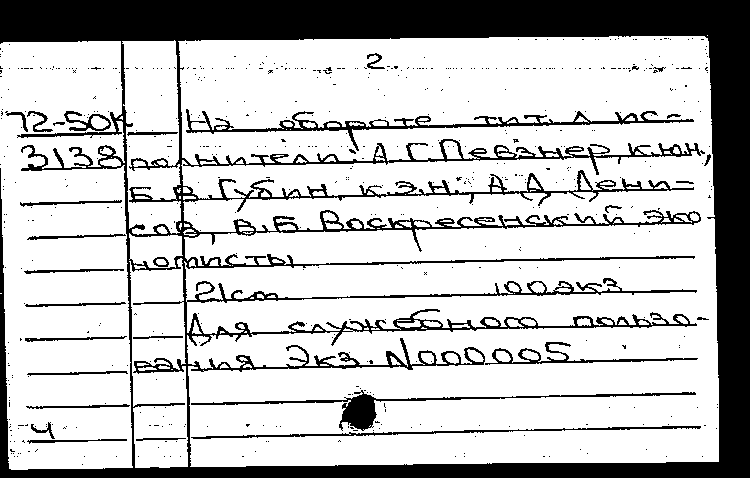 2.
72-50К На обороте тит. л. ис-
3138 полнители: А.Г. Певзнер, к.ю.н.,
Б.В. Губин, к.э.н., А.Д. Дени-
сов, В.Б. Воскресенский, эко-
номисты.
21 cm. 100 экз.
Для служебного пользо-
вания. Экз. N000005.
Ч